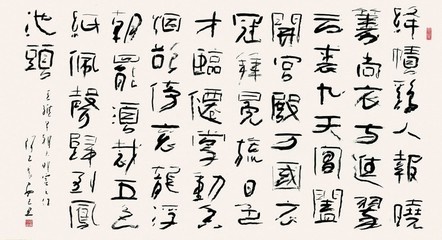 絳幘雞人報曉
籌尚衣方進翠
云裘九天閶闔
開宮殿万國衣
冠拜冕旒日色
才臨僊掌動香
烟欲傍袞龍浮
朝罷須裁五色
詔佩聲歸到鳳
池頭